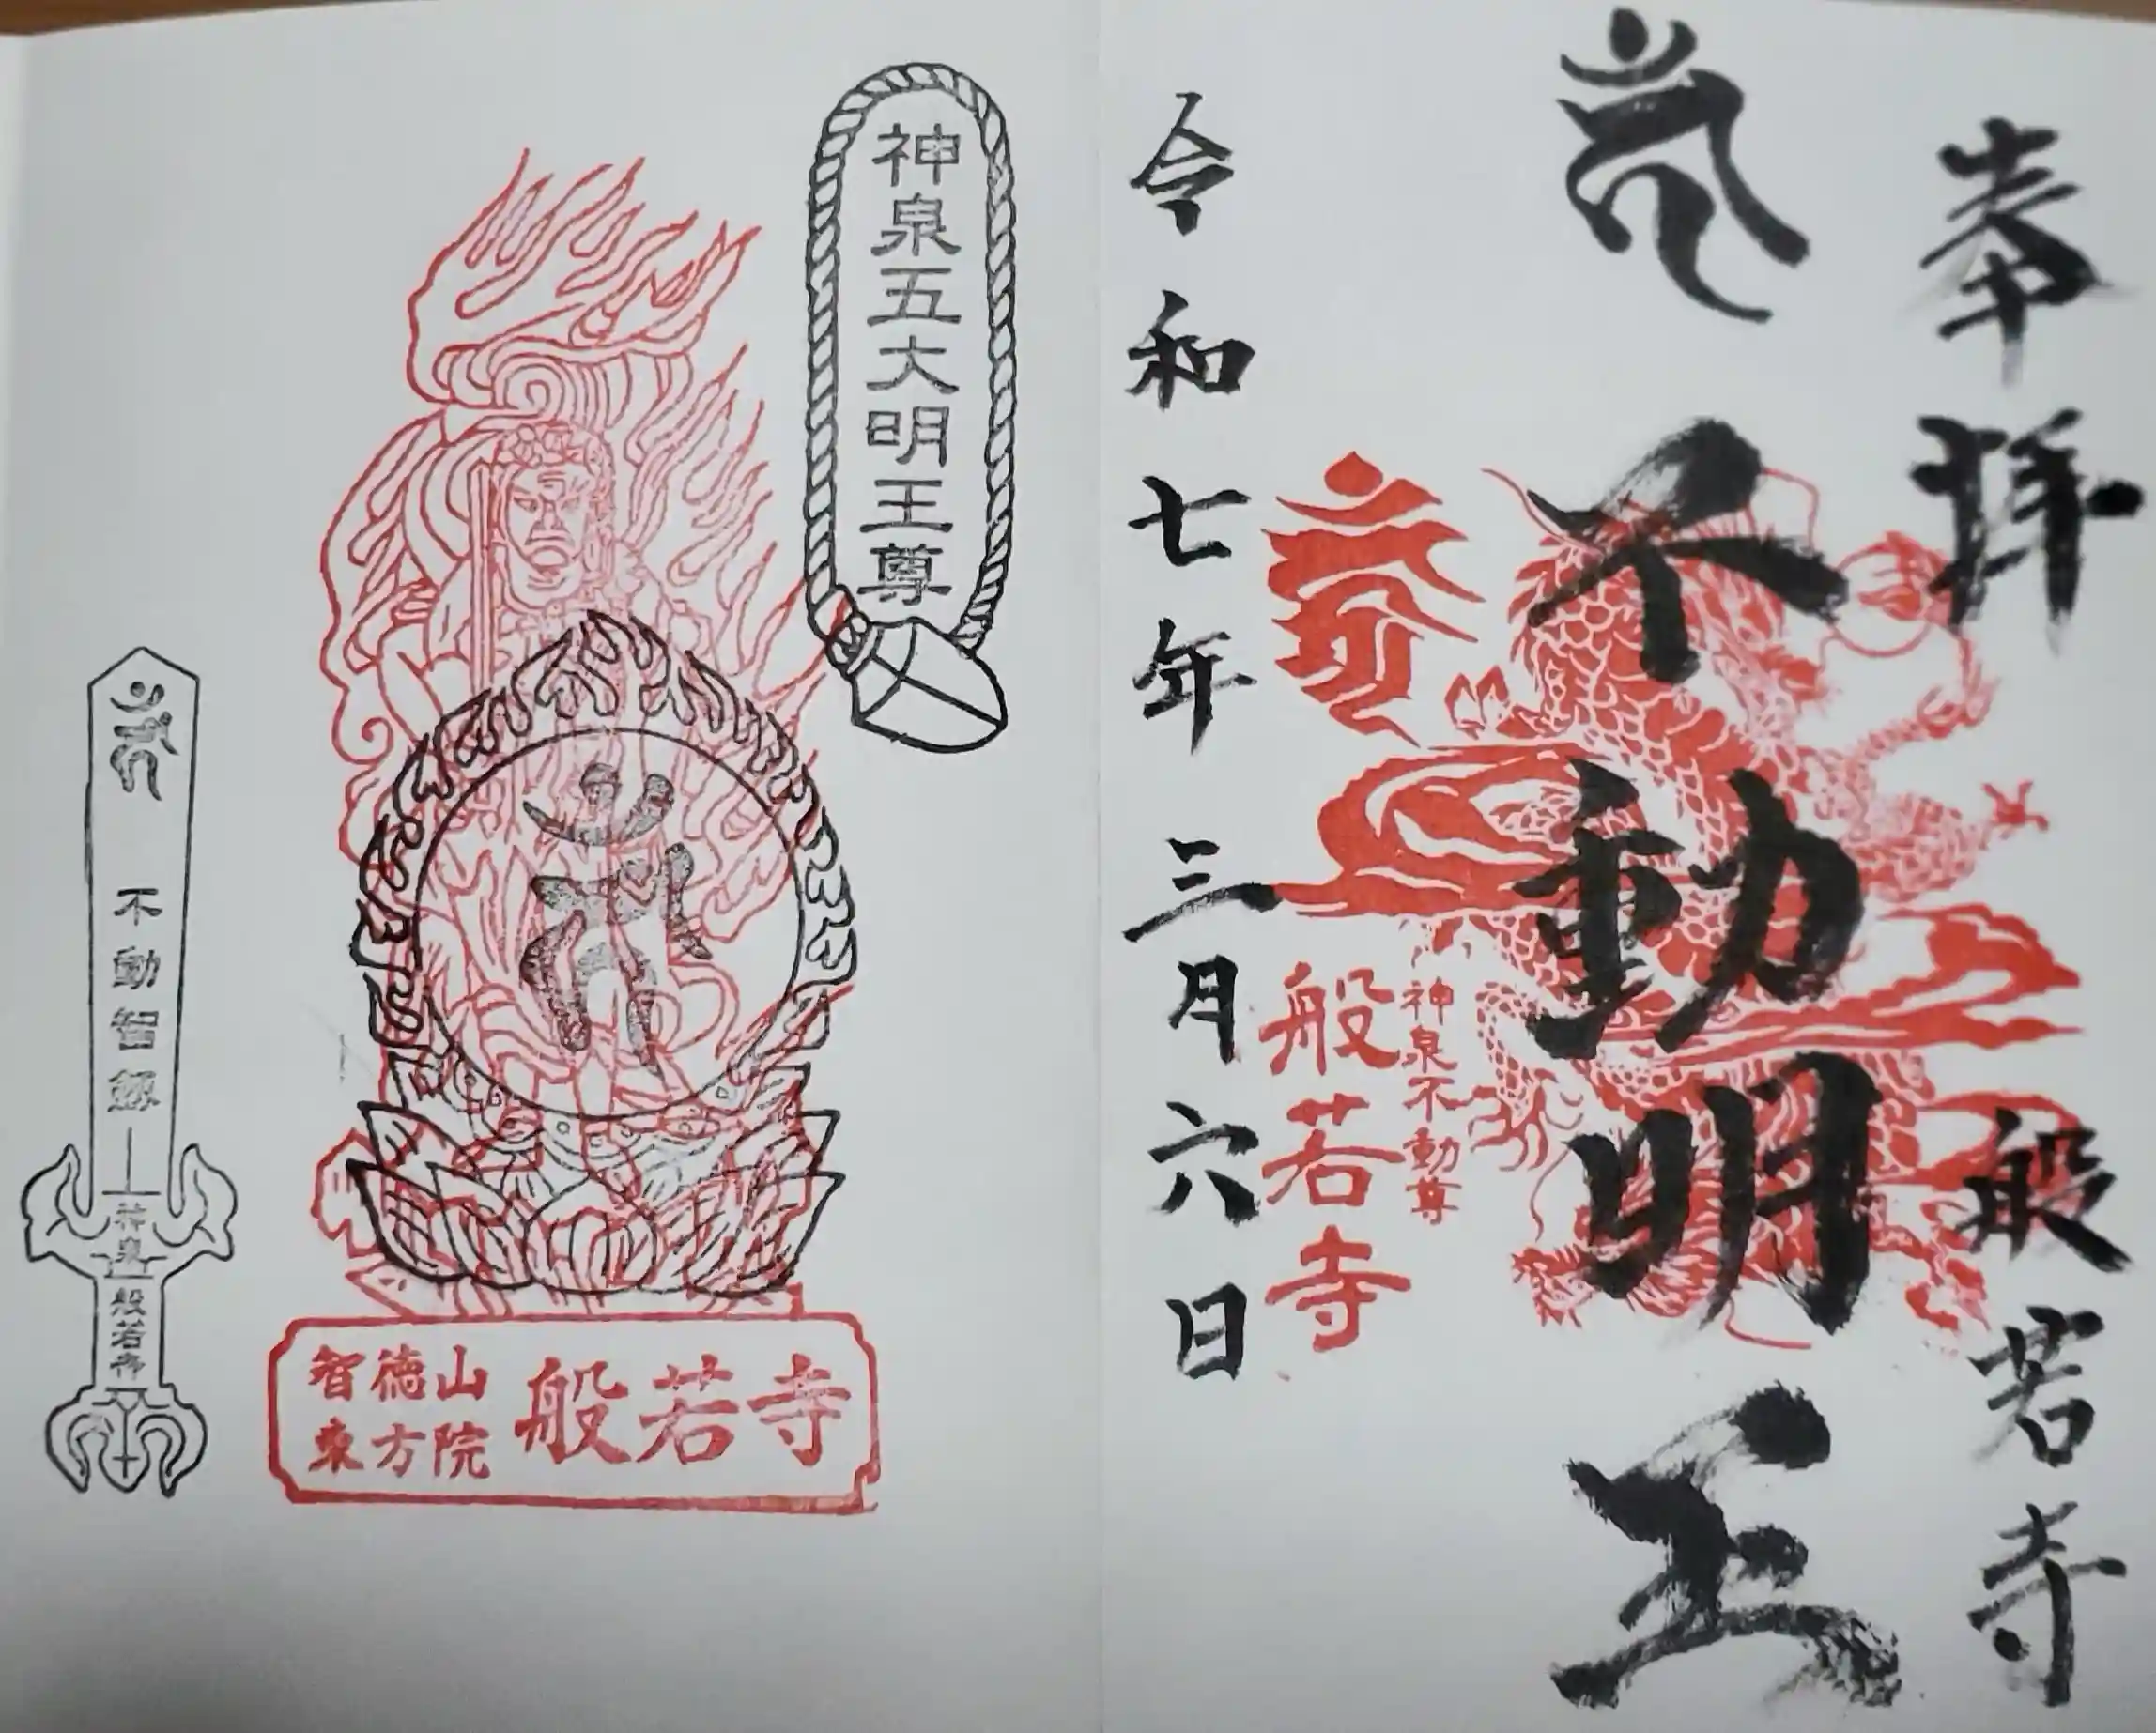 奉拝
般若寺
不動明王
神泉不動尊
般若寺
令和七年三月六日
神泉五大明王尊
智徳山
東方院
般若寺
不動智劔
神泉
般若寺